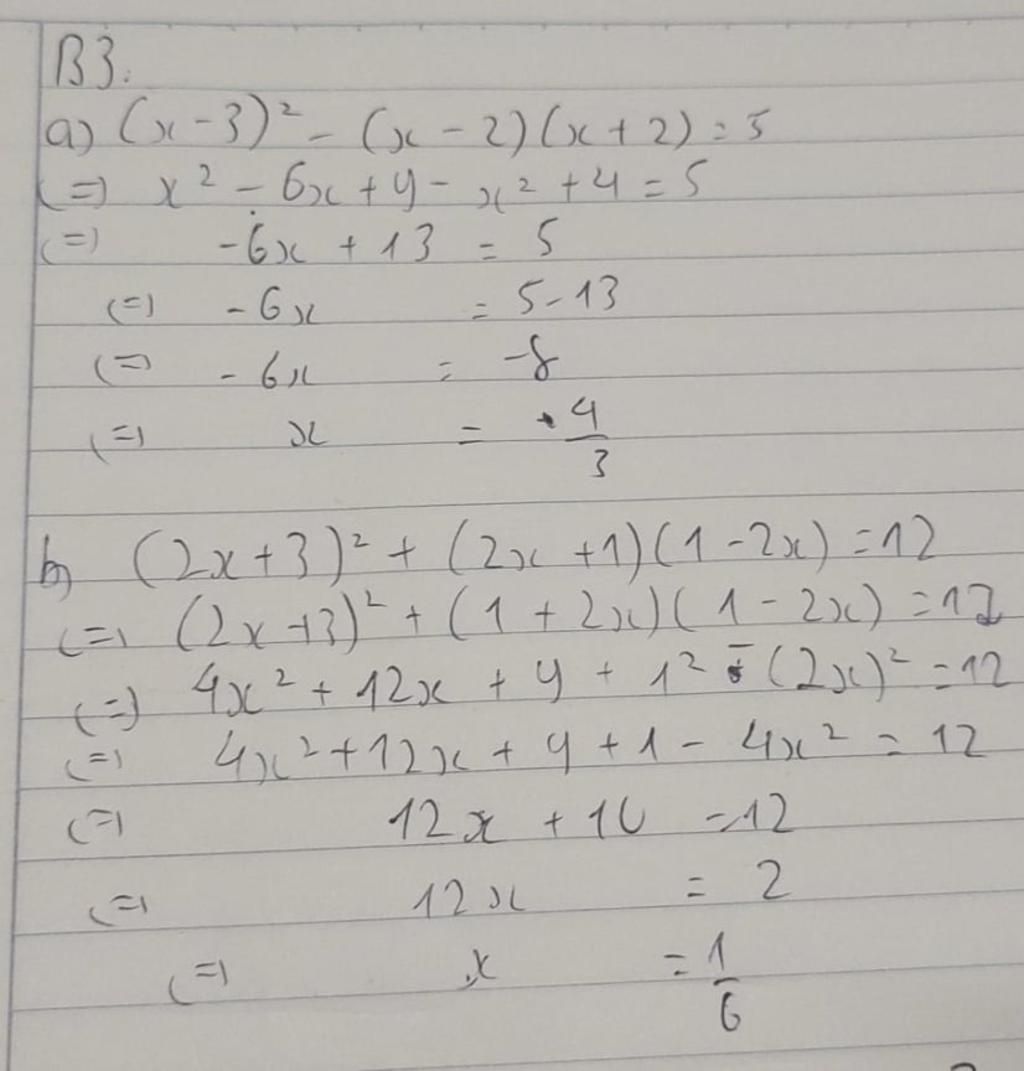 B3.
a) (x - 3)² - (x - 2)(x + 2) = 5
(=) x² - 6x + 9 - x² + 4 = 5
(=) -6x + 13 = 5
(=) -6x = 5 - 13
(=) -6x = -8
(=) x = 4/3
b) (2x + 3)² + (2x + 1)(1 - 2x) = 12
(=) (2x + 3)² + (1 + 2x)(1 - 2x) = 12
(=) 4x² + 12x + 9 + 1² - (2x)² = 12
(=) 4x² + 12x + 9 + 1 - 4x² = 12
(=) 12x + 10 = 12
(=) 12x = 2
(=) x = 1/6